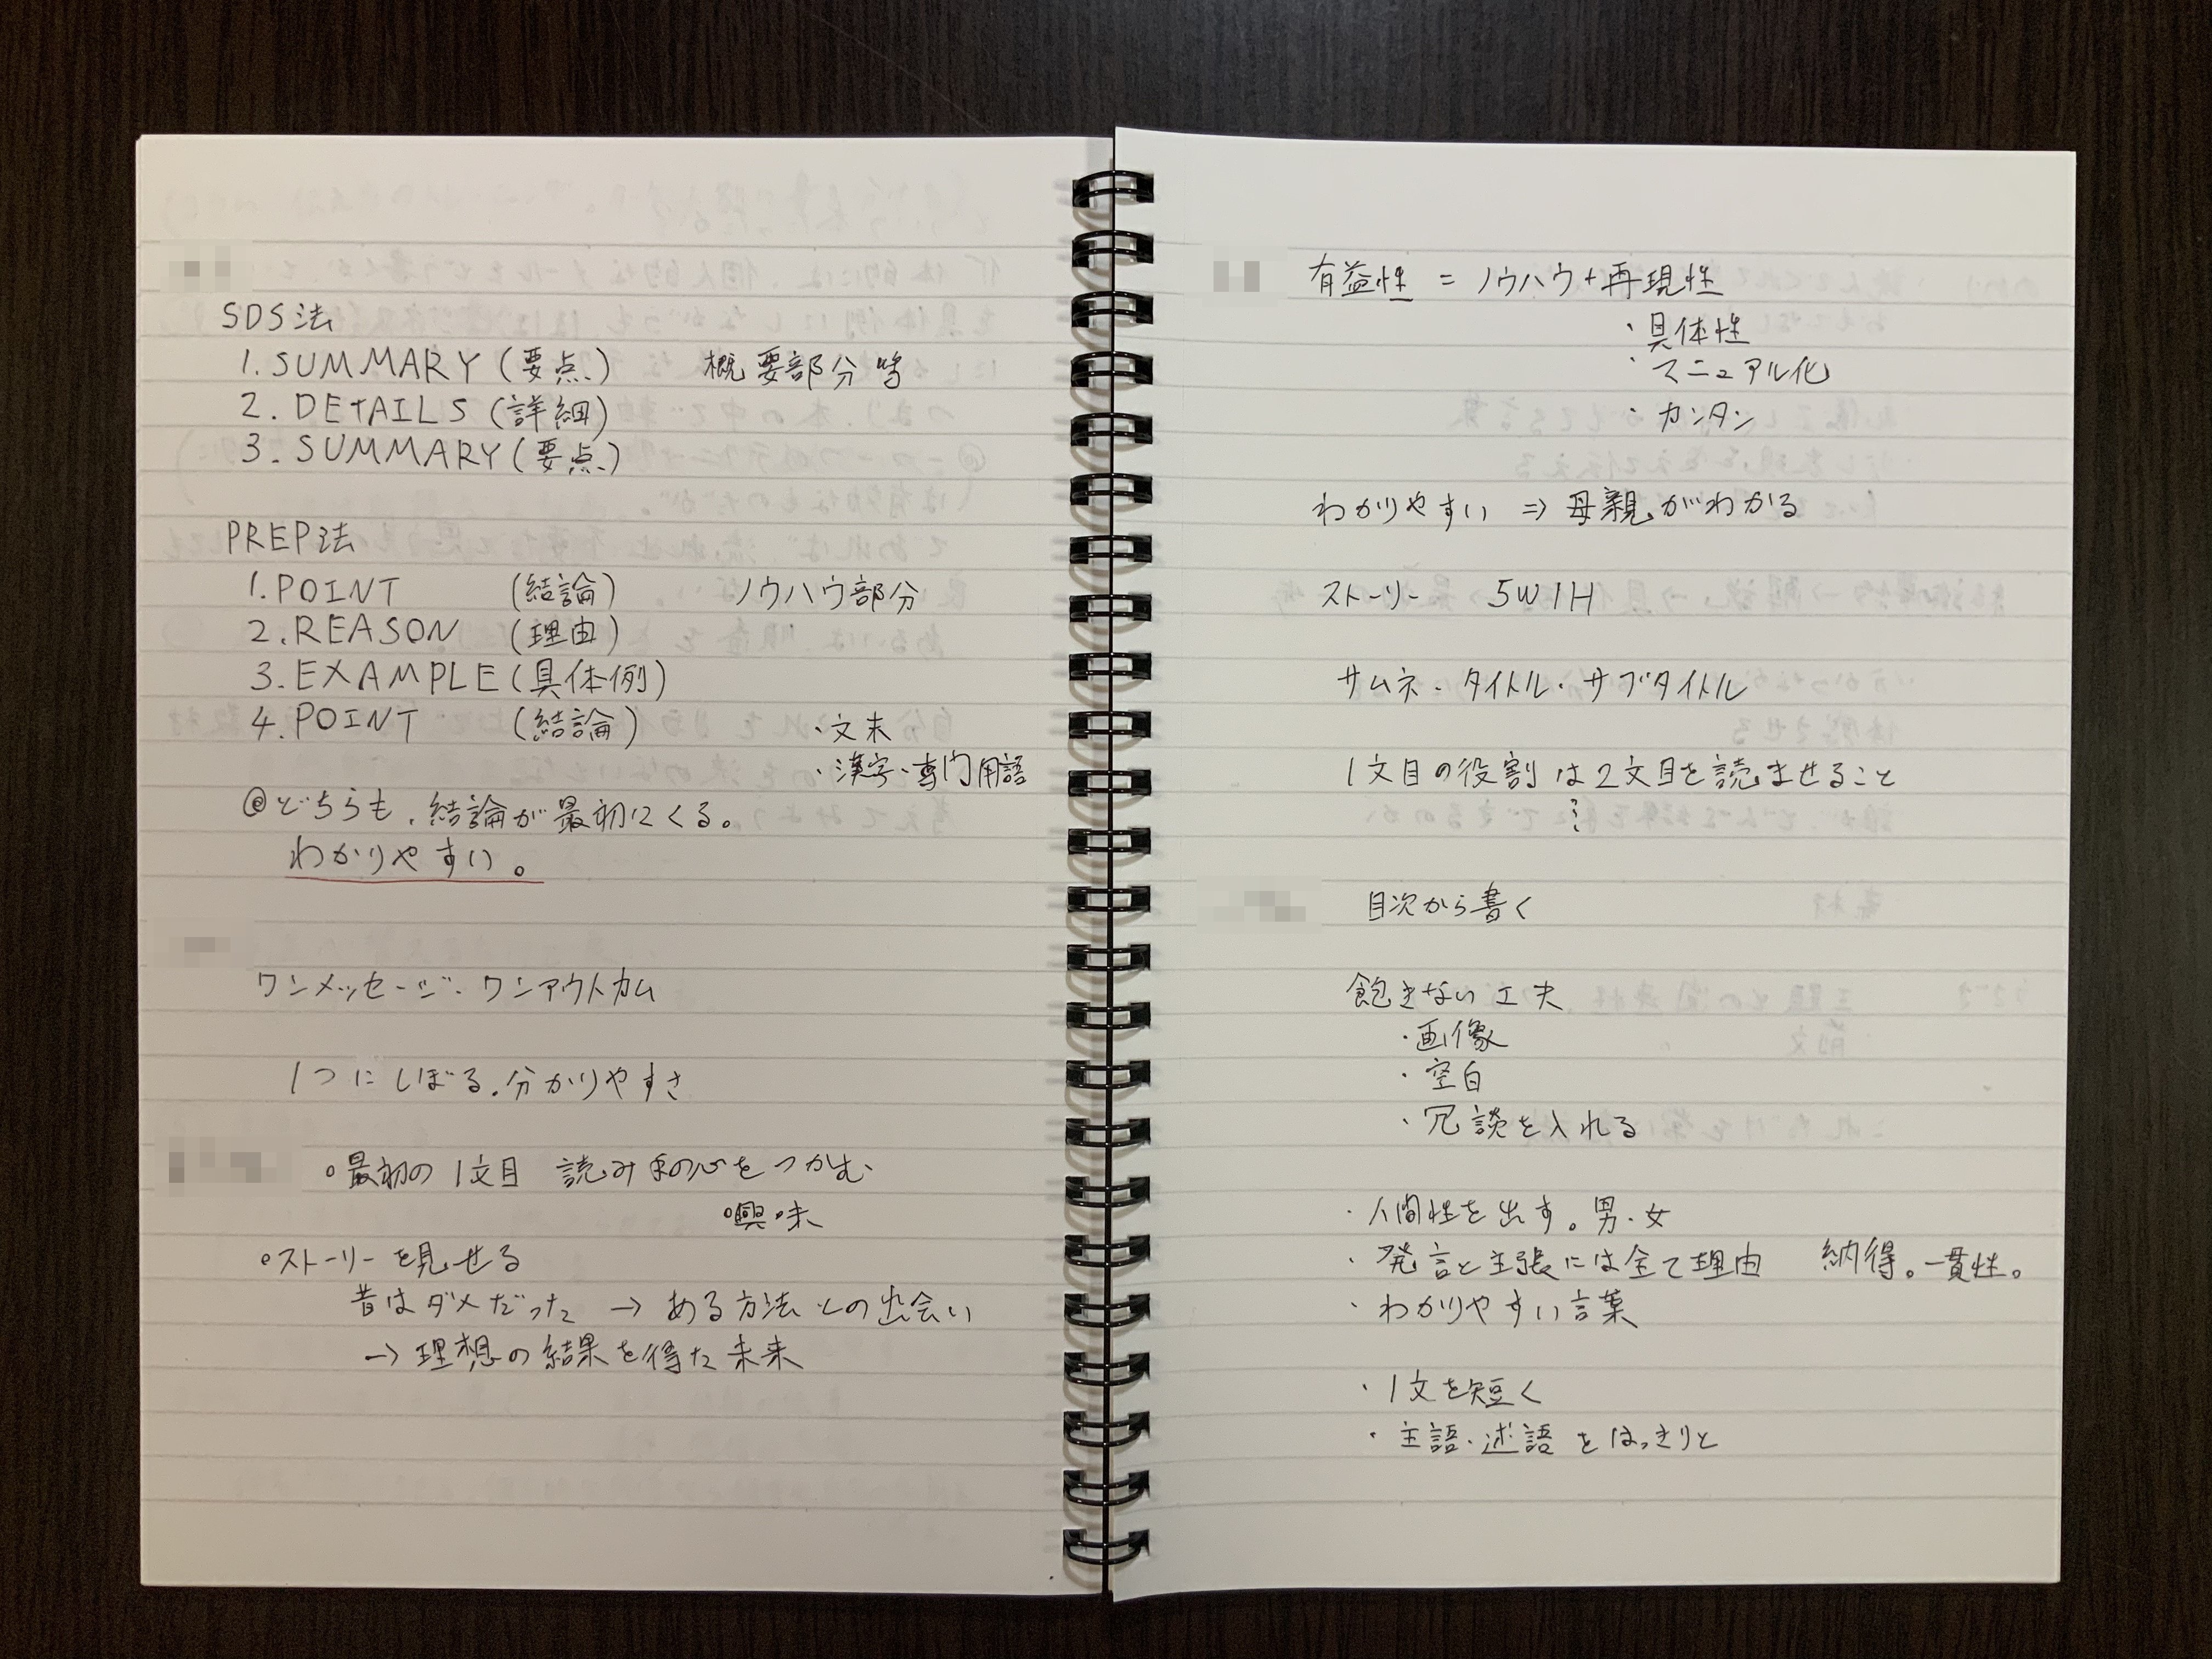 SDS法
1. SUMMARY (要点) 概要部分等
2. DETAILS (詳細)
3. SUMMARY (要点)
PREP法
1. POINT (結論) ノウハウ部分
2. REASON (理由)
3. EXAMPLE (具体例)
4. POINT (結論) ・文末
・漢字・専門用語
@どちらも、結論が最初にくる。
わかりやすい。
ワンメッセージ・ワンアウトカム
1つにしぼる.分かりやすさ
○最初の1文目 読み手の心をつかむ
○興味
○ストーリーを見せる
昔はダメだった → ある方法との出会い
→ 理想の結果を得た未来
有益性 = ノウハウ+再現性
・具体性
・マニュアル化
・カンタン
わかりやすい ⇒ 母親がわかる
ストーリー 5W1H
サムネ・タイトル・サブタイトル
1文目の役割は2文目を読ませること
目次から書く
飽きない工夫
・画像
・空白
・冗談を入れる
・人間性を出す。男・女
・発言と主張には全て理由 納得。一貫性。
・わかりやすい言葉
・1文を短く
・主語・述語をはっきりと